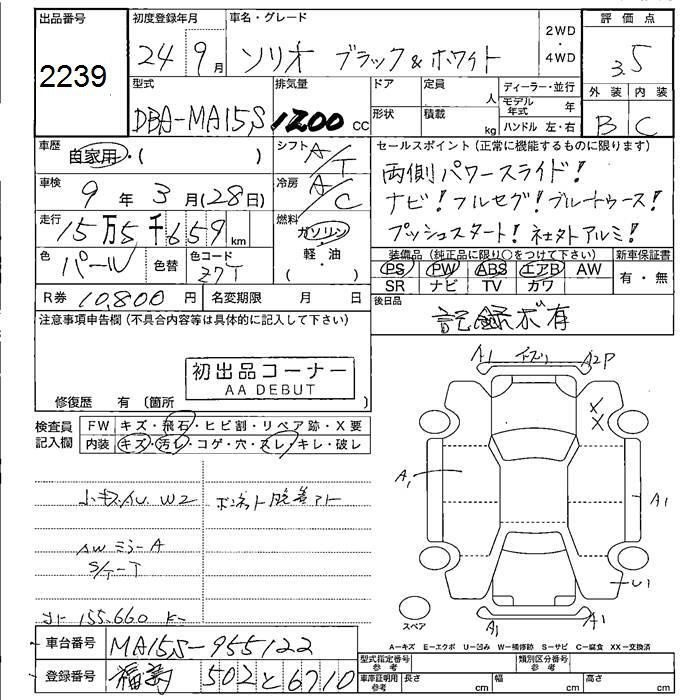 出品番号
2239
初度登録年月
24 9月
車名・グレード
ソリオ ブラック&ホワイト
2WD
・
4WD
評価点
3.5
外装 内装
B C
型式
DBA-MA15S
排気量
1200 cc
ドア
形状
定員
人
積載
kg
ディーラー・並行
モデル年式 年
ハンドル 左・右
車歴
自家用・( )
シフト
A/T
車検
9年3月(28日)
冷房
A/C
走行
15万5千659 km
燃料
ガソリン
・
軽・油
( )
色
パール
色替
色コード
Z7T
セールスポイント(正常に機能するものに限ります)
両側パワースライド!
ナビ!フルセグ!ブルートゥース!
プッシュスタート!社外アルミ!
装備品(純正品に限り○をつけて下さい)
PS PW ABS エアB AW
SR ナビ TV カワ
新車保証書
有・無
R券 10,800円
名変期限 月 日
後日品
記録ボ有
注意事項申告欄(不具合内容等は具体的に記入して下さい)
初出品コーナー
AA DEBUT
修復歴 有(箇所 )
検査員記入欄
FW キズ・飛石・ヒビ割・リペア跡・X要
内装 キズ・汚レ・コゲ・穴・スレ・キレ・破レ
W2
AWミラーA
155,660
A1 A2P
X
X
A1 A1
U1
A1 A1
スペア
A=キズ E=エクボ U=凹み W=補修跡 S=サビ C=腐食 XX=交換済
車台番号 MA15S-955122
登録番号 502 と 6710
型式指定番号参考
類別区分番号参考
車庫証明用参考 長さ cm 幅 cm 高さ cm